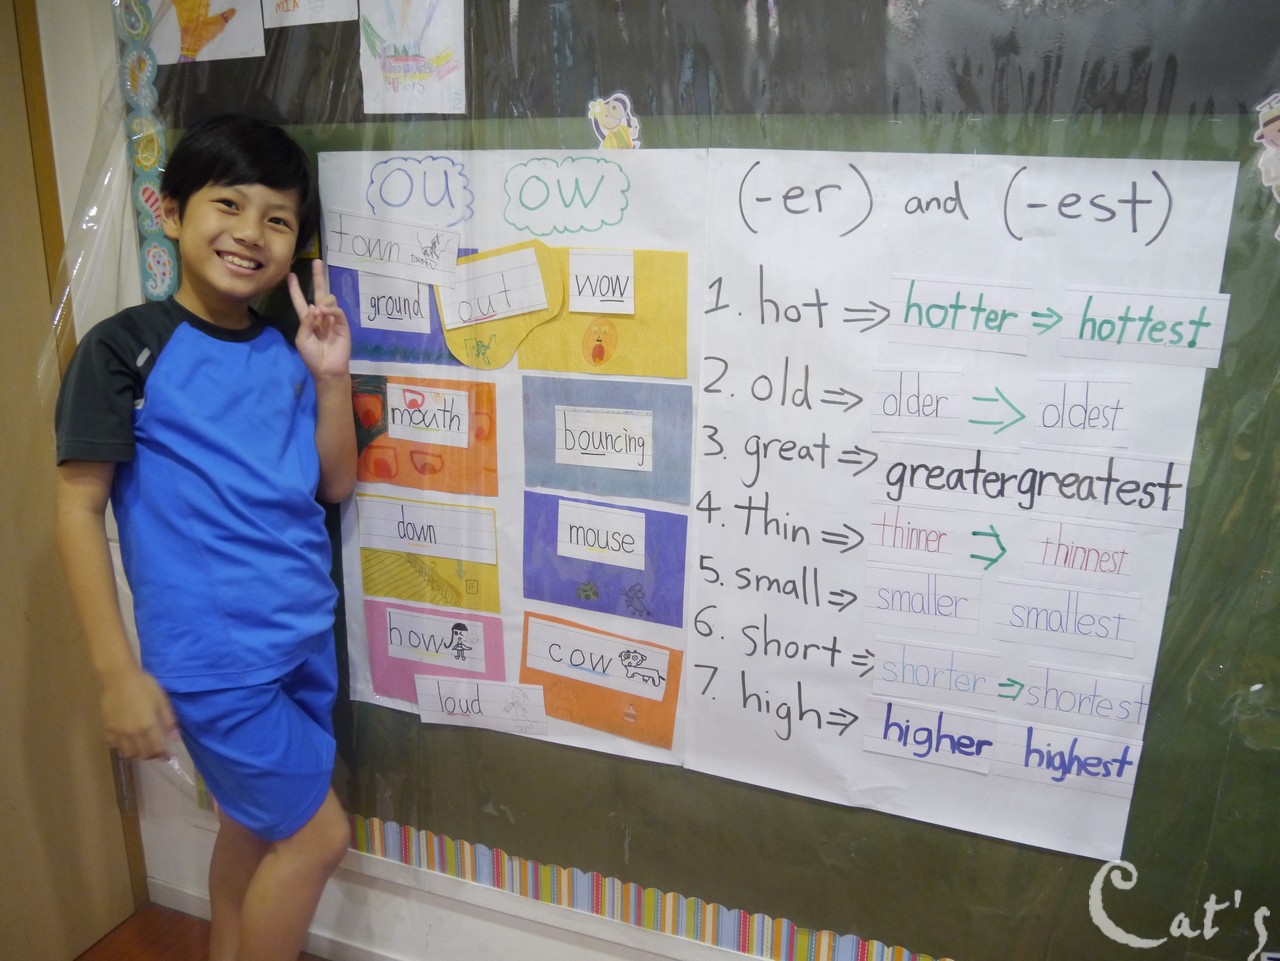 MIA
ou ow
town
ground
out
wow
mouth
bouncing
down
mouse
how
cow
loud
(-er) and (-est)
1. hot ⇒ hotter ⇒ hottest
2. old ⇒ older ⇒ oldest
3. great ⇒ greater greatest
4. thin ⇒ thinner ⇒ thinnest
5. small ⇒ smaller smallest
6. short ⇒ shorter ⇒ shortest
7. high ⇒ higher highest
Cat's